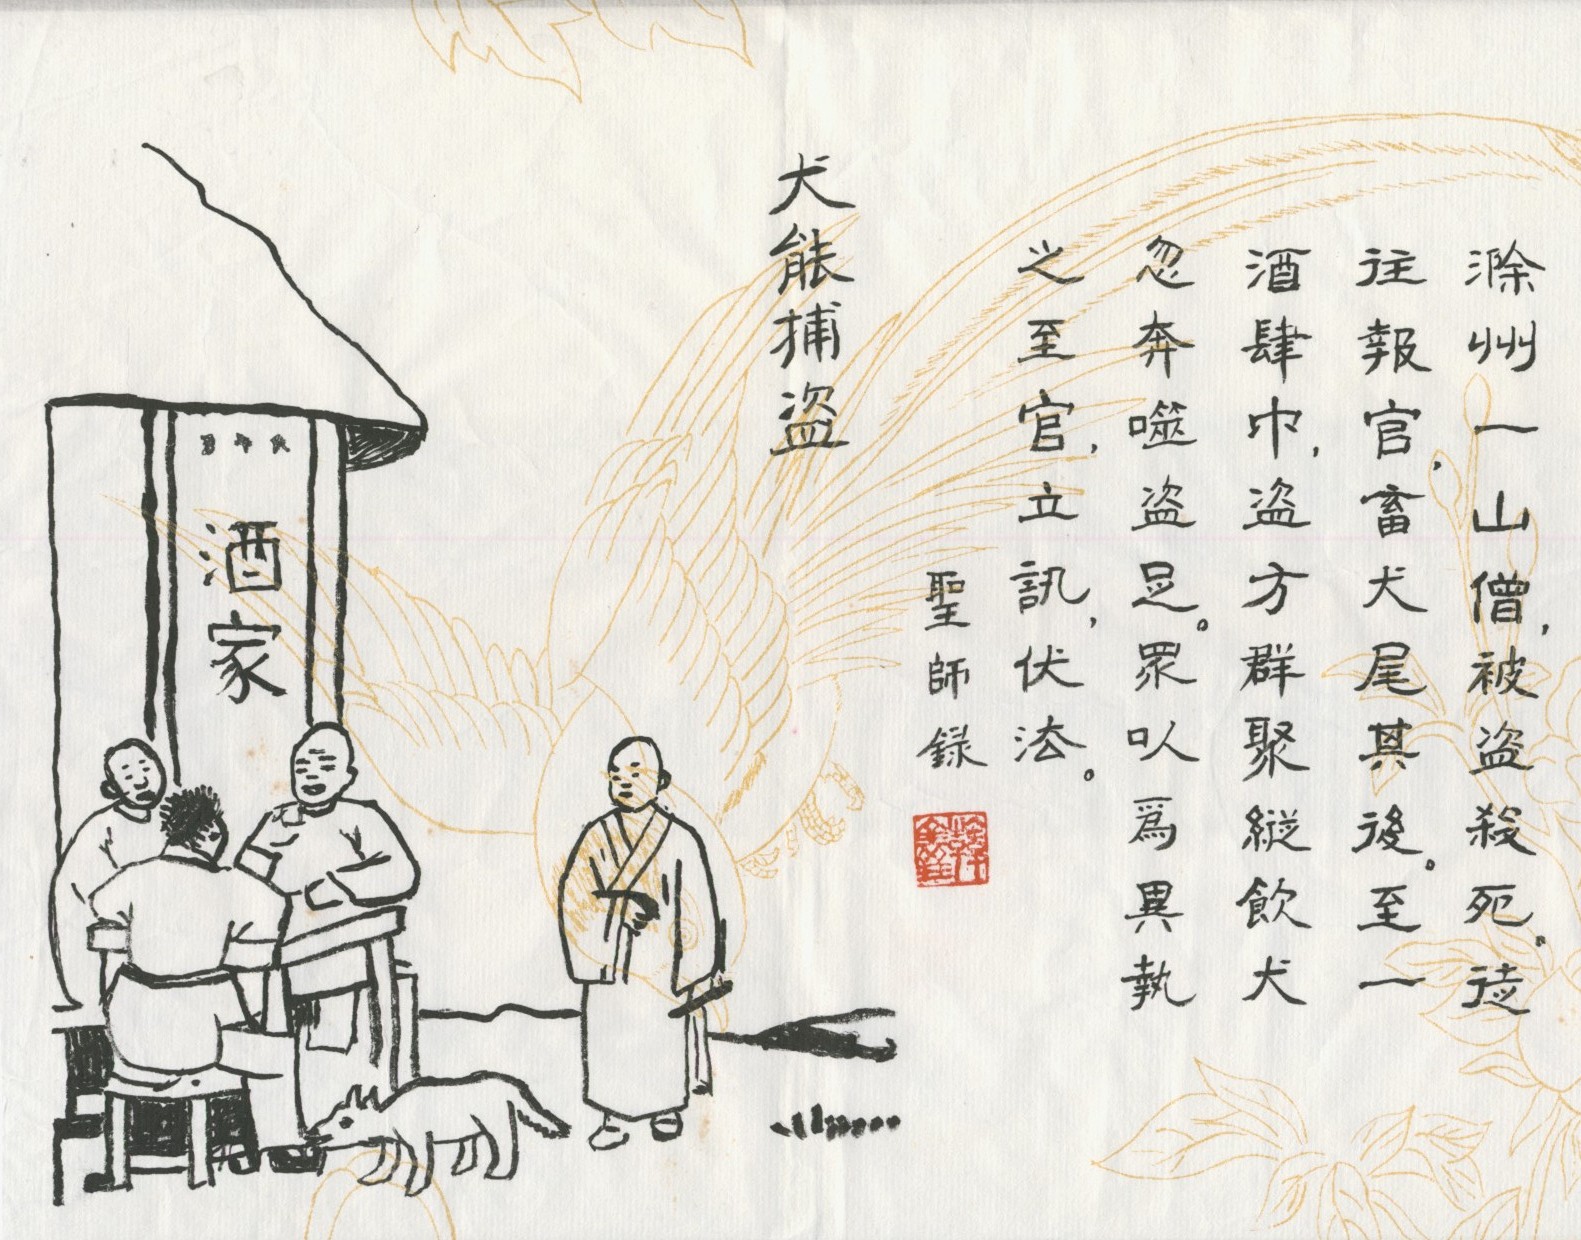 滁州一山僧,被盗殺死。徒
往報官,畜犬尾其後。至一
酒肆中,盗方群聚縱飲犬
忽奔噬盗足。眾以爲異執
之至官,立訊,伏法。
聖師録
犬能捕盗
酒家